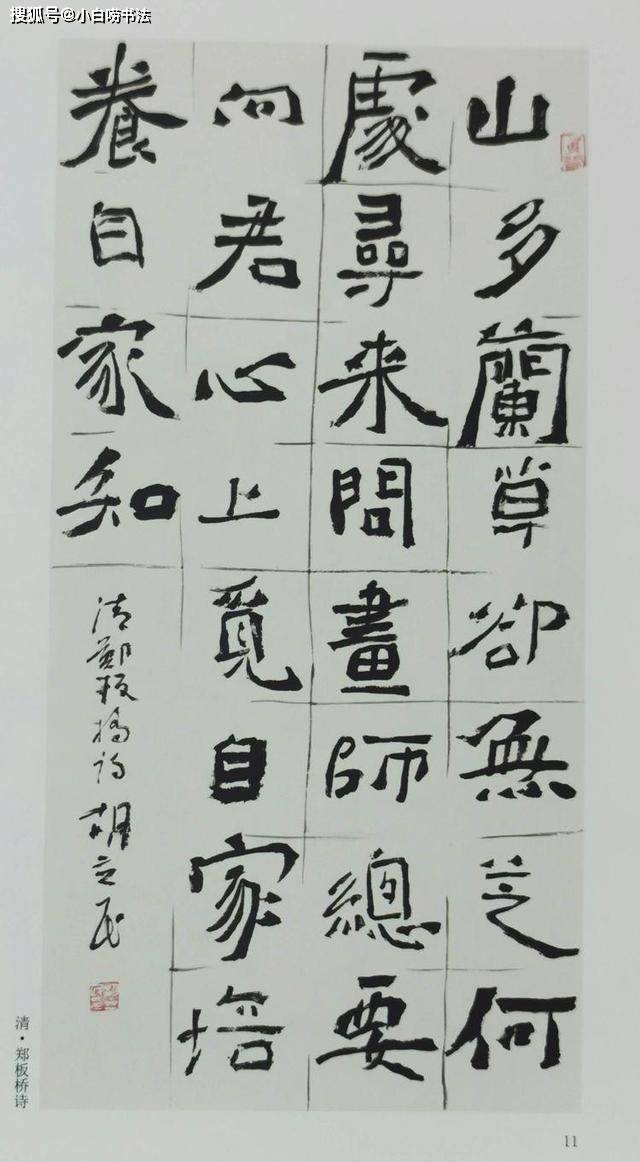 搜狐号@小白唠书法
山多蘭草卻無芝何
處尋來問畫師總要
向君心上覓自家培
養自家知
清鄭板橋詩 胡立民
清·郑板桥诗
11